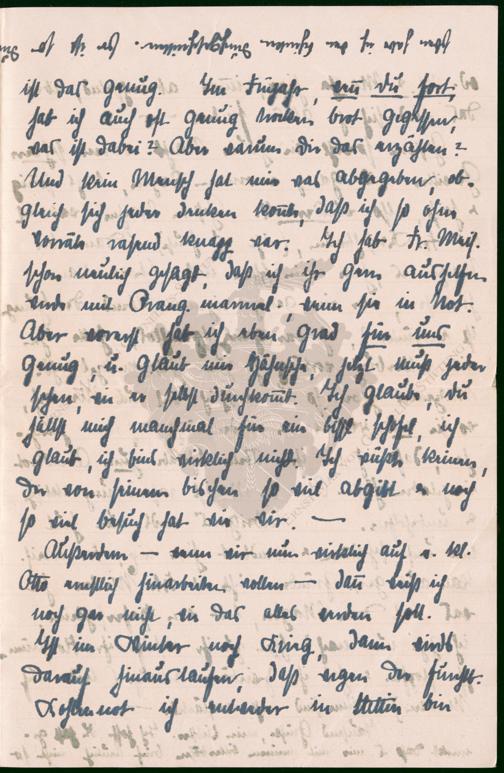 ist das genug. Im Frühjahr, wenn du fort,
hab ich auch oft genug trocken brot gegessen,
was ist dabei? Aber warum dir das erzählen?
Und kein Mensch hat mir was abgegeben, ob-
gleich sich jeder denken konnte, daß ich so ohne
Vorräte rasend knapp war. Ich hab Fr. Meis.
schon neulich gesagt, daß ich ihr gern aushelfen
werde mit Orang. marmel., wenn sie in Not.
Aber vorerst hab ich eben grad für uns
genug, u. glaub mir, jetzt muß jeder
sehen, wie er selbst durchkommt. Ich glaube, du
hältst mich manchmal für ein bißl schofel, ich
glaub, ich bins wirklich nicht. Ich wüßte keinen,
der von seinem bischen so viel abgibt u. noch
so viel besuch hat wie wir. —
Außerdem — wenn wir nun wirklich auf e. kl.
Otto ernstlich hinarbeiten wollen — dann weiß ich
noch gar nicht, wie das alles werden soll.
Ist im Winter noch Krieg, dann wirds
darauf hinauslaufen, daß wegen der fürcht.
Kohlennot ich entweder in Stettin bin